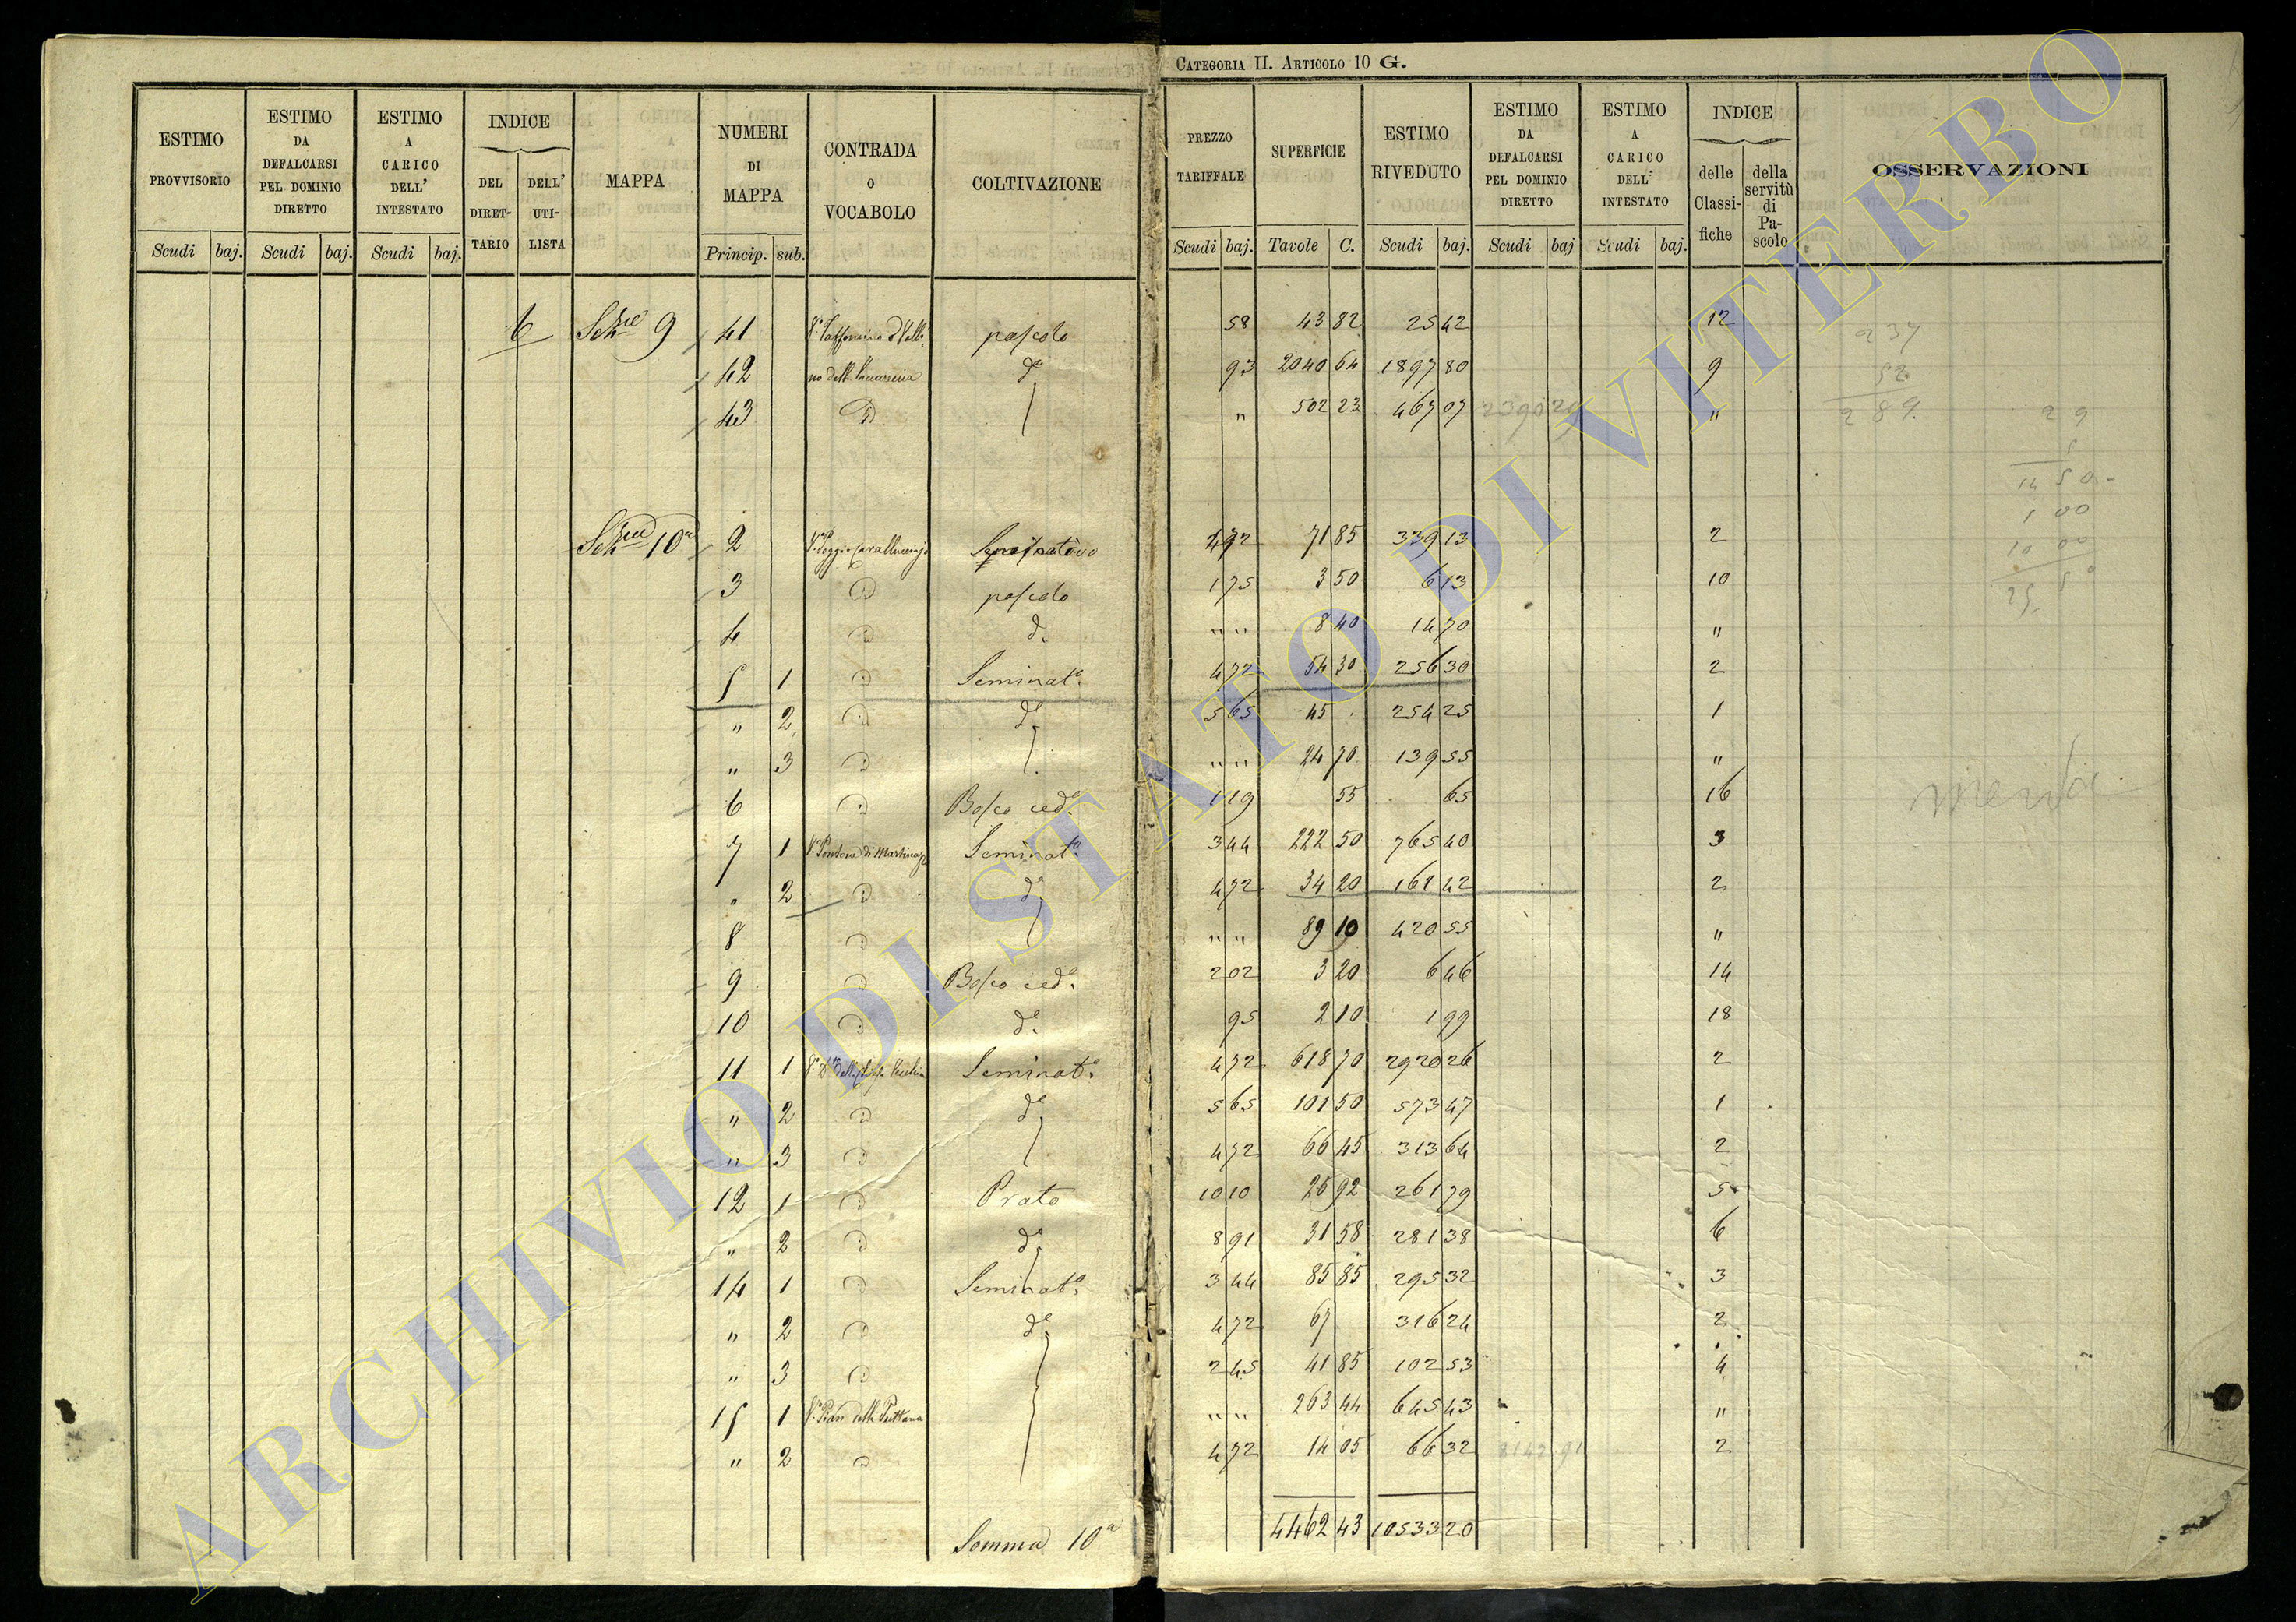 CATEGORIA II. ARTICOLO 10 G.
ESTIMO PROVVISORIO | ESTIMO DA DEFALCARSI PEL DOMINIO DIRETTO | ESTIMO A CARICO DELL' INTESTATO | INDICE DEL DIRETTARIO | DELL' UTILISTA | MAPPA | NUMERI DI MAPPA | CONTRADA O VOCABOLO | COLTIVAZIONE | PREZZO TARIFFALE | SUPERFICIE | ESTIMO RIVEDUTO | ESTIMO DA DEFALCARSI PEL DOMINIO DIRETTO | ESTIMO A CARICO DELL' INTESTATO | INDICE delle Classifiche | della servitù di Pascolo | OSSERVAZIONI
Scudi baj. Scudi baj. Scudi baj. Princip. sub. Scudi baj. Tavole C. Scudi baj. Scudi baj Scudi baj.
6 9 41 pascolo 58 43 82 25 42 12 237
42 d.° 93 2040 64 1897 80 9 52
43 D " 502 23 467 07 2390 29 " 289. 29
5
14 50
1 00
10 00
25 50
10a 2 Seminativo 472 71 85 339 13 2
3 D pascolo 1 75 3 50 6 13 10
4 D d.° " " 8 40 14 70 "
5 1 D Seminat.° 4 72 54 30 256 30 2
" 2 D d.° 5 65 45 . 254 25 1
" 3 D " " 24 70 139 55 "
6 D Bosco ced.° 1 19 55 65 16
7 1 Seminat.° 3 44 222 50 765 40 3
" 2 D d.° 4 72 34 20 161 42 2
8 D " " 89 10 420 55 "
9 D Bosco ced.° 2 02 3 20 6 46 14
10 D d.° 95 2 10 1 99 18
11 1 Seminat.° 4 72 618 70 2920 26 2
" 2 D d.° 5 65 101 50 573 47 1
" 3 D 4 72 66 45 313 64 2
12 1 D Prato 10 10 25 92 261 79 5
" 2 D d.° 8 91 31 58 281 38 6
14 1 D Seminat.° 3 44 85 85 295 32 3
" 2 D d.° 4 72 67 316 24 2
" 3 D 2 45 41 85 102 53 4
15 1 263 44 645 43 "
" 2 D 4 72 14 05 66 32 8142 91 2
Somma 10a 4462 43 10533 20
ARCHIVIO DI STATO DI VITERBO